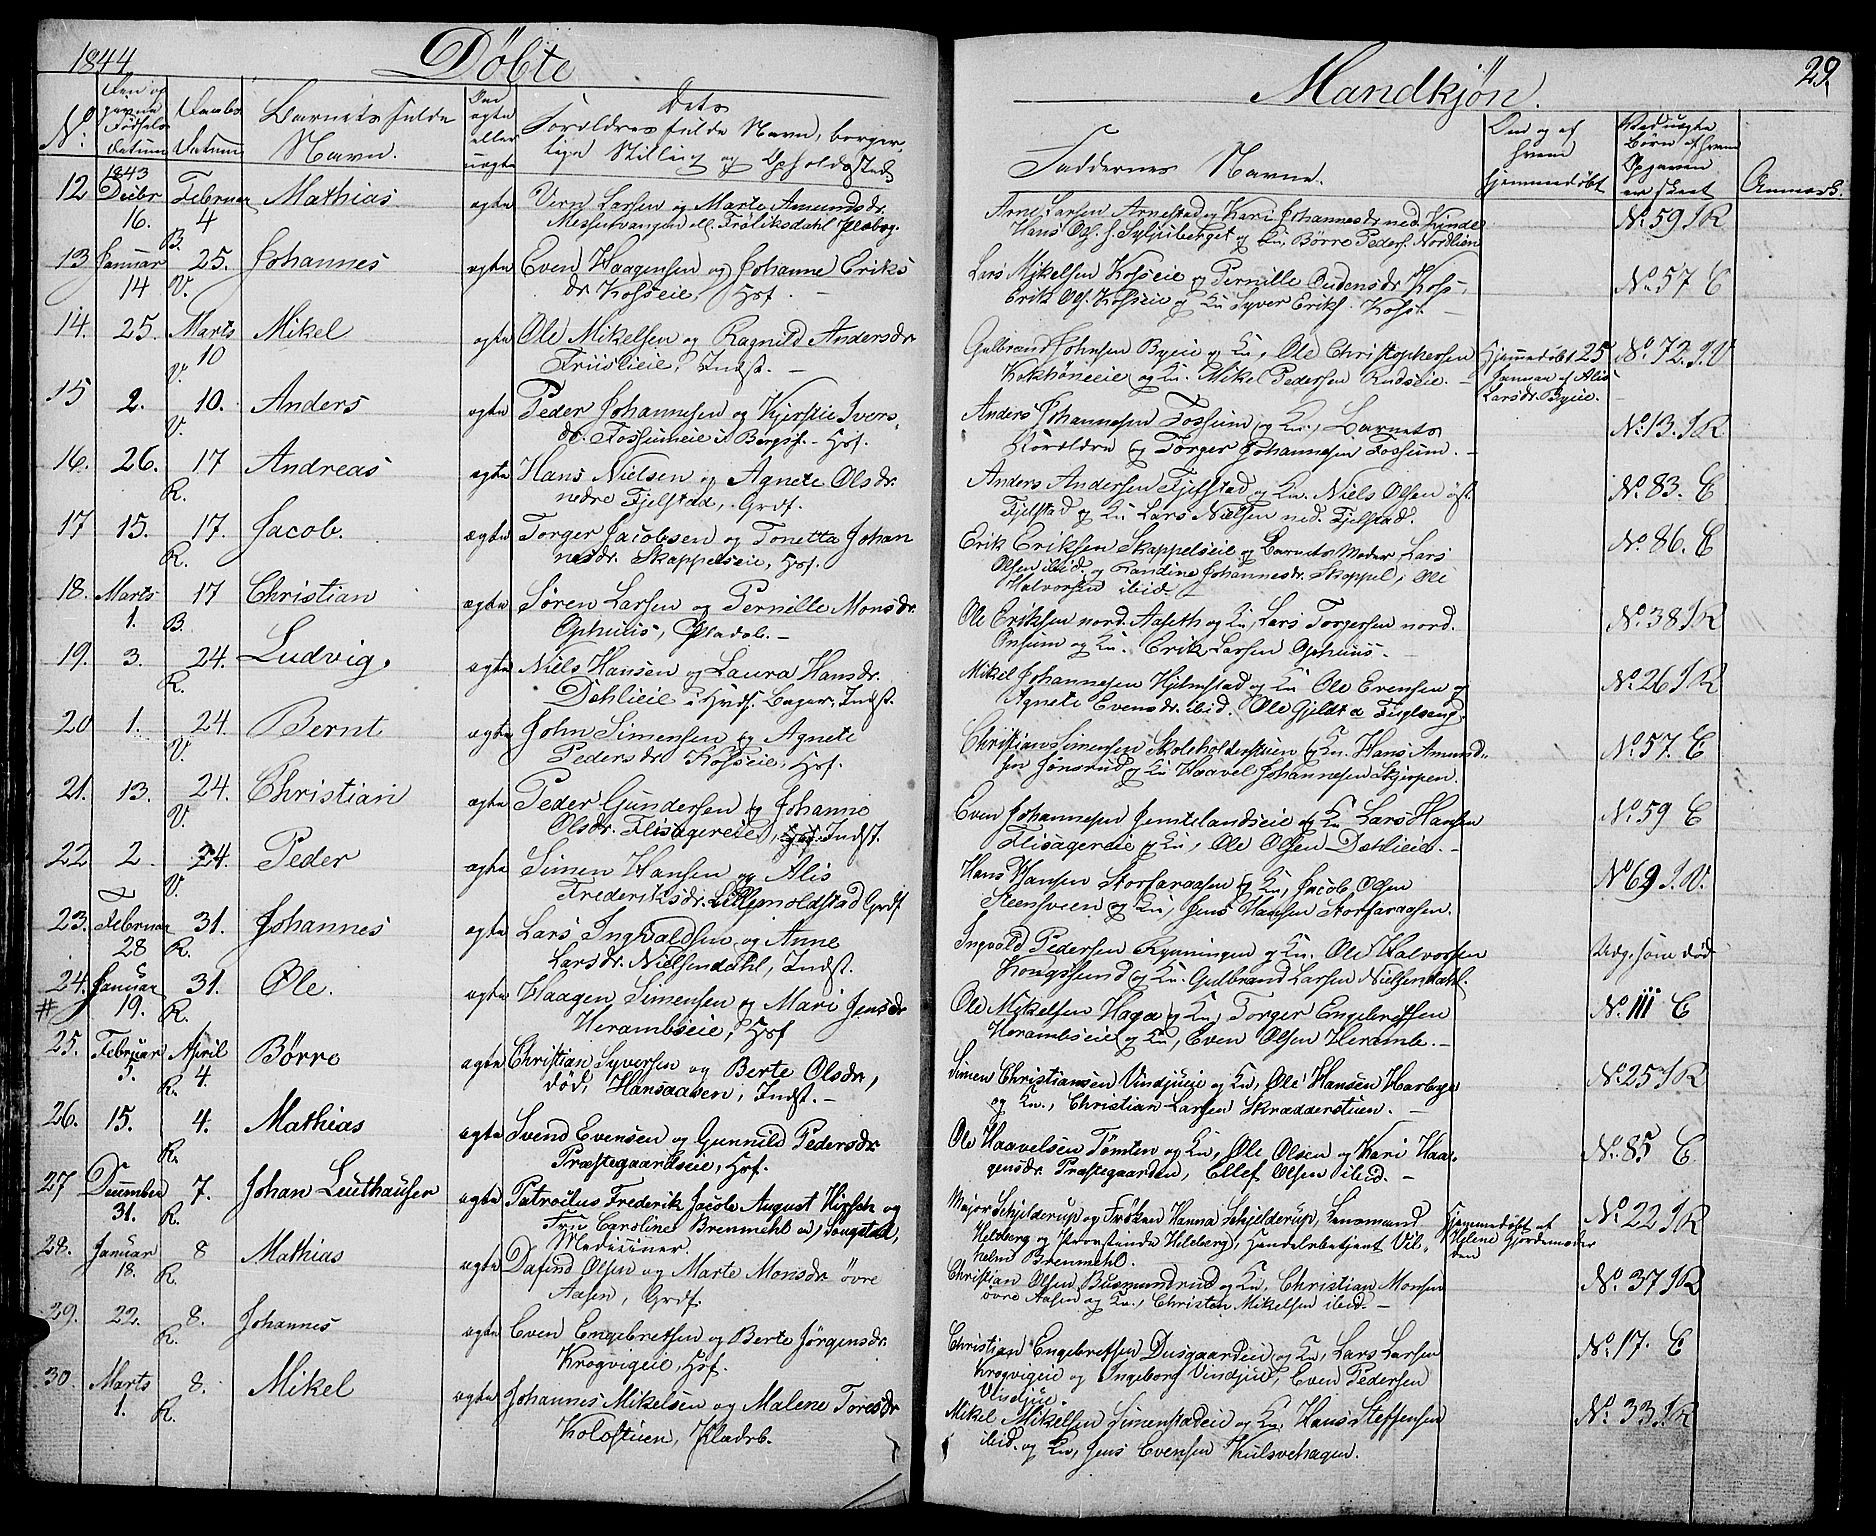 1844
Döbte
Mandkjøn.
29.
No.
Fødsels
Datum
Daabs
Datum
Barnets fulde
Navn.
ægte
eller
uægte
Dets
Forældres fulde Navn, borger-
lige Stilling og Opholdssted
Faddernes Navne.
Om og af
hvem
hjemmedøbt
Ved uægte
Børn af hvem
Opgaven
er skeet
Anmærk.
12 1843 Decbr 16. Februar 4 B. Mathias ægte
Larsen og Marte Amundsdr.
Frøliksdahl
Arne Larsen Arnestad og Kari Johannesdr. ned. Kinde
Hans Ols. og Ku, Børre Peders. Nordlien
No. 59 I R
13 Januar 14 25. V. Johannes ægte
Even Haagensen og Johanne Eriks
dr. Kosseie, Hsf. —
Lars Mikelsen Kosseie og Pernille Oudensdr. Koss,
Erik Ols. Kosseie og Ku Syver Eriks. Koss. —
No. 57 E
14. 25. Marts 10 V. Mikel ægte
Ole Mikelsen og Ragnild Andersdr.
Friislieie, Indst. —
Gulbrand Johnsen Byeie og Ku, Ole Christophersen
og Ku. Mikel Pedersen Rudseie. —
Hjemmedøbt 25
Januar af Alis
Larsdr. Byeie.
No. 72. I V
15 2. 10. V. Anders ægte
Peder Johannesen og Kjerstie Ivers
dr. Fossumeie i Bergsf. Hsf.
Anders Johannesen Fossum og Ku., Barnets
Forældre og Torger Johannesen Fossum. —
No. 13. I R
16. 26. 17 R. Andreas ægte
Hans Nielsen og Agnete Olsdr.
nedre Fjelstad, Grdf.
Anders Andersen Fjelstad og Ku. Niels Olsen øst.
Fjelstad og Ku Lars Nielsen ned. Fjelstad.
No. 83. E
17 15. 17. R. Jacob. ægte
Torger Jacobsen og Tonetta Johan
nesdr. Skappelseie, Hsf.
Erik Eriksen Skappelseie og Barnets Moder, Lars
Olsen ibid. og Randine Johannesdr. Skappel, Ole
Halvorsen ibid. —
No. 86. E
18. Marts 1. 17 B. Christian ægte
Søren Larsen og Pernille Monsdr.
Ophuus, —
Ole Eriksen nord. Aaseth og Ku, Lars Torgersen nord.
Onsum og Ku. Erik Larsen Ophuus. —
No. 38 I R
19. 3. 24. R. Ludvig. ægte
Niels Hansen og Laura Hansdr.
Dehlieie i Indst.
Mikel Johannesen Hjelmstad og Ku Ole Evensen og
Agnete Evensdr. ibid. Ole
No. 26 I R
20 1. 24. V. Bernt ægte
John Simensen og Agnete
Pedersdr. Kosseie, Hsf.
Christian Simensen Skoleholderstuen og Ku. Hans Amund-
sen Jonsrud og Ku Haavel Johannesen Skjerpen.
No. 57. E
21. 13. 24. V. Christian ægte
Peder Gundersen og Johanne
Olsdr. Flisagereie, Indst.
Even Johannesen Jemtelandseie og Ku Lars Hansen
Flisagereie og Ku, Ole Olsen Dehlieie. —
No. 59 E
22 2 24. V. Peder ægte
Simen Hansen og Alis
Frederiksdr. Grdf
Hans Hansen Storfaraasen og Ku, Jacob Olsen
Steensveen og Ku, Jens Hansen Storfaraasen.
No 69 I. V.
23. Februar 28 31. R. Johannes ægte
Lars Ingvaldsen og Anne
Larsdr. Nielsendahl, Indst.
Ingvold Pedersen Rynningen og Ku. Ole Halvorsen
Kongssund og Ku. Gulbrand Larsen Nielsendahl.
Udg. som død
24. # Januar 19. 31. R. Ole. ægte
Haagen Simensen og Mari Jensdr
Herambseie, Hsf
Ole Mikelsen Haga og Ku, Torger Engebretsen
Herambseie og Ku, Even Olsen Heramb. —
No. 111 E
25. Februar 5. April 4. R. Børre ægte
Christian Syversen og Berte Olsdr,
død, Hansaasen, Indst. —
Simen Christiansen Vindjueie og Ku, Ole Hansen Harbye
og Ku., Christian Larsen Skrædderstuen. —
No. 25 I R
26. 15. 4. R. Mathias ægte
Svend Evensen og Gunnild Pedersdr.
Præstegaardseie, Hsf.
Ole Haavelsen Tømten og Ku, Ole Olsen og Kari Haa-
gensdr. Præstegaarden, Ellef Olsen ibid. —
No. 85 E
27 December 31. 7. R. Johan Leuthäuser ægte
Patroclus Frederik Jacob August Hirsch og
Fru Caroline Brenmehl
Mediciner.
Major Schjelderup og Frøken Hanna Schjelderup, Lensmand
Heldberg og Provstinde Heldberg, Handelsbetjent Vil-
helm Brenmehl.
Hjemmedøbt af
Helene Gjordemoder
No. 22 I R
28. Januar 18. 8 R. Mathias ægte
Dafind Olsen og Marte Monsdr. øvre
Aasen, Grdf.
Christian Olsen Busmundrud og Ku, Christian Monsen
øvre Aasen og Ku., Christen Mikelsen ibid. —
No. 37 I R
29. 22. 8. R. Johannes ægte
Even Engebretsen og Berte Jørgensdr.
Krogvigeie, Hsf.
Christian Engebretsen Dusgaardeie og Ku, Lars Larsen
Krogvigeie og Ingeborg Vindjue, Even Pedersen
Vindjue.
No. 17. E
30. Marts 1. 8. R. Mikel ægte
Johannes Mikelsen og Malene Toresdr
Kolostuen,
Mikel Mikelsen Simenstadeie og Ku. Hans Steffensen
ibid. og Ku, Jens Evensen Kulsvehagen.
No. 33 I R